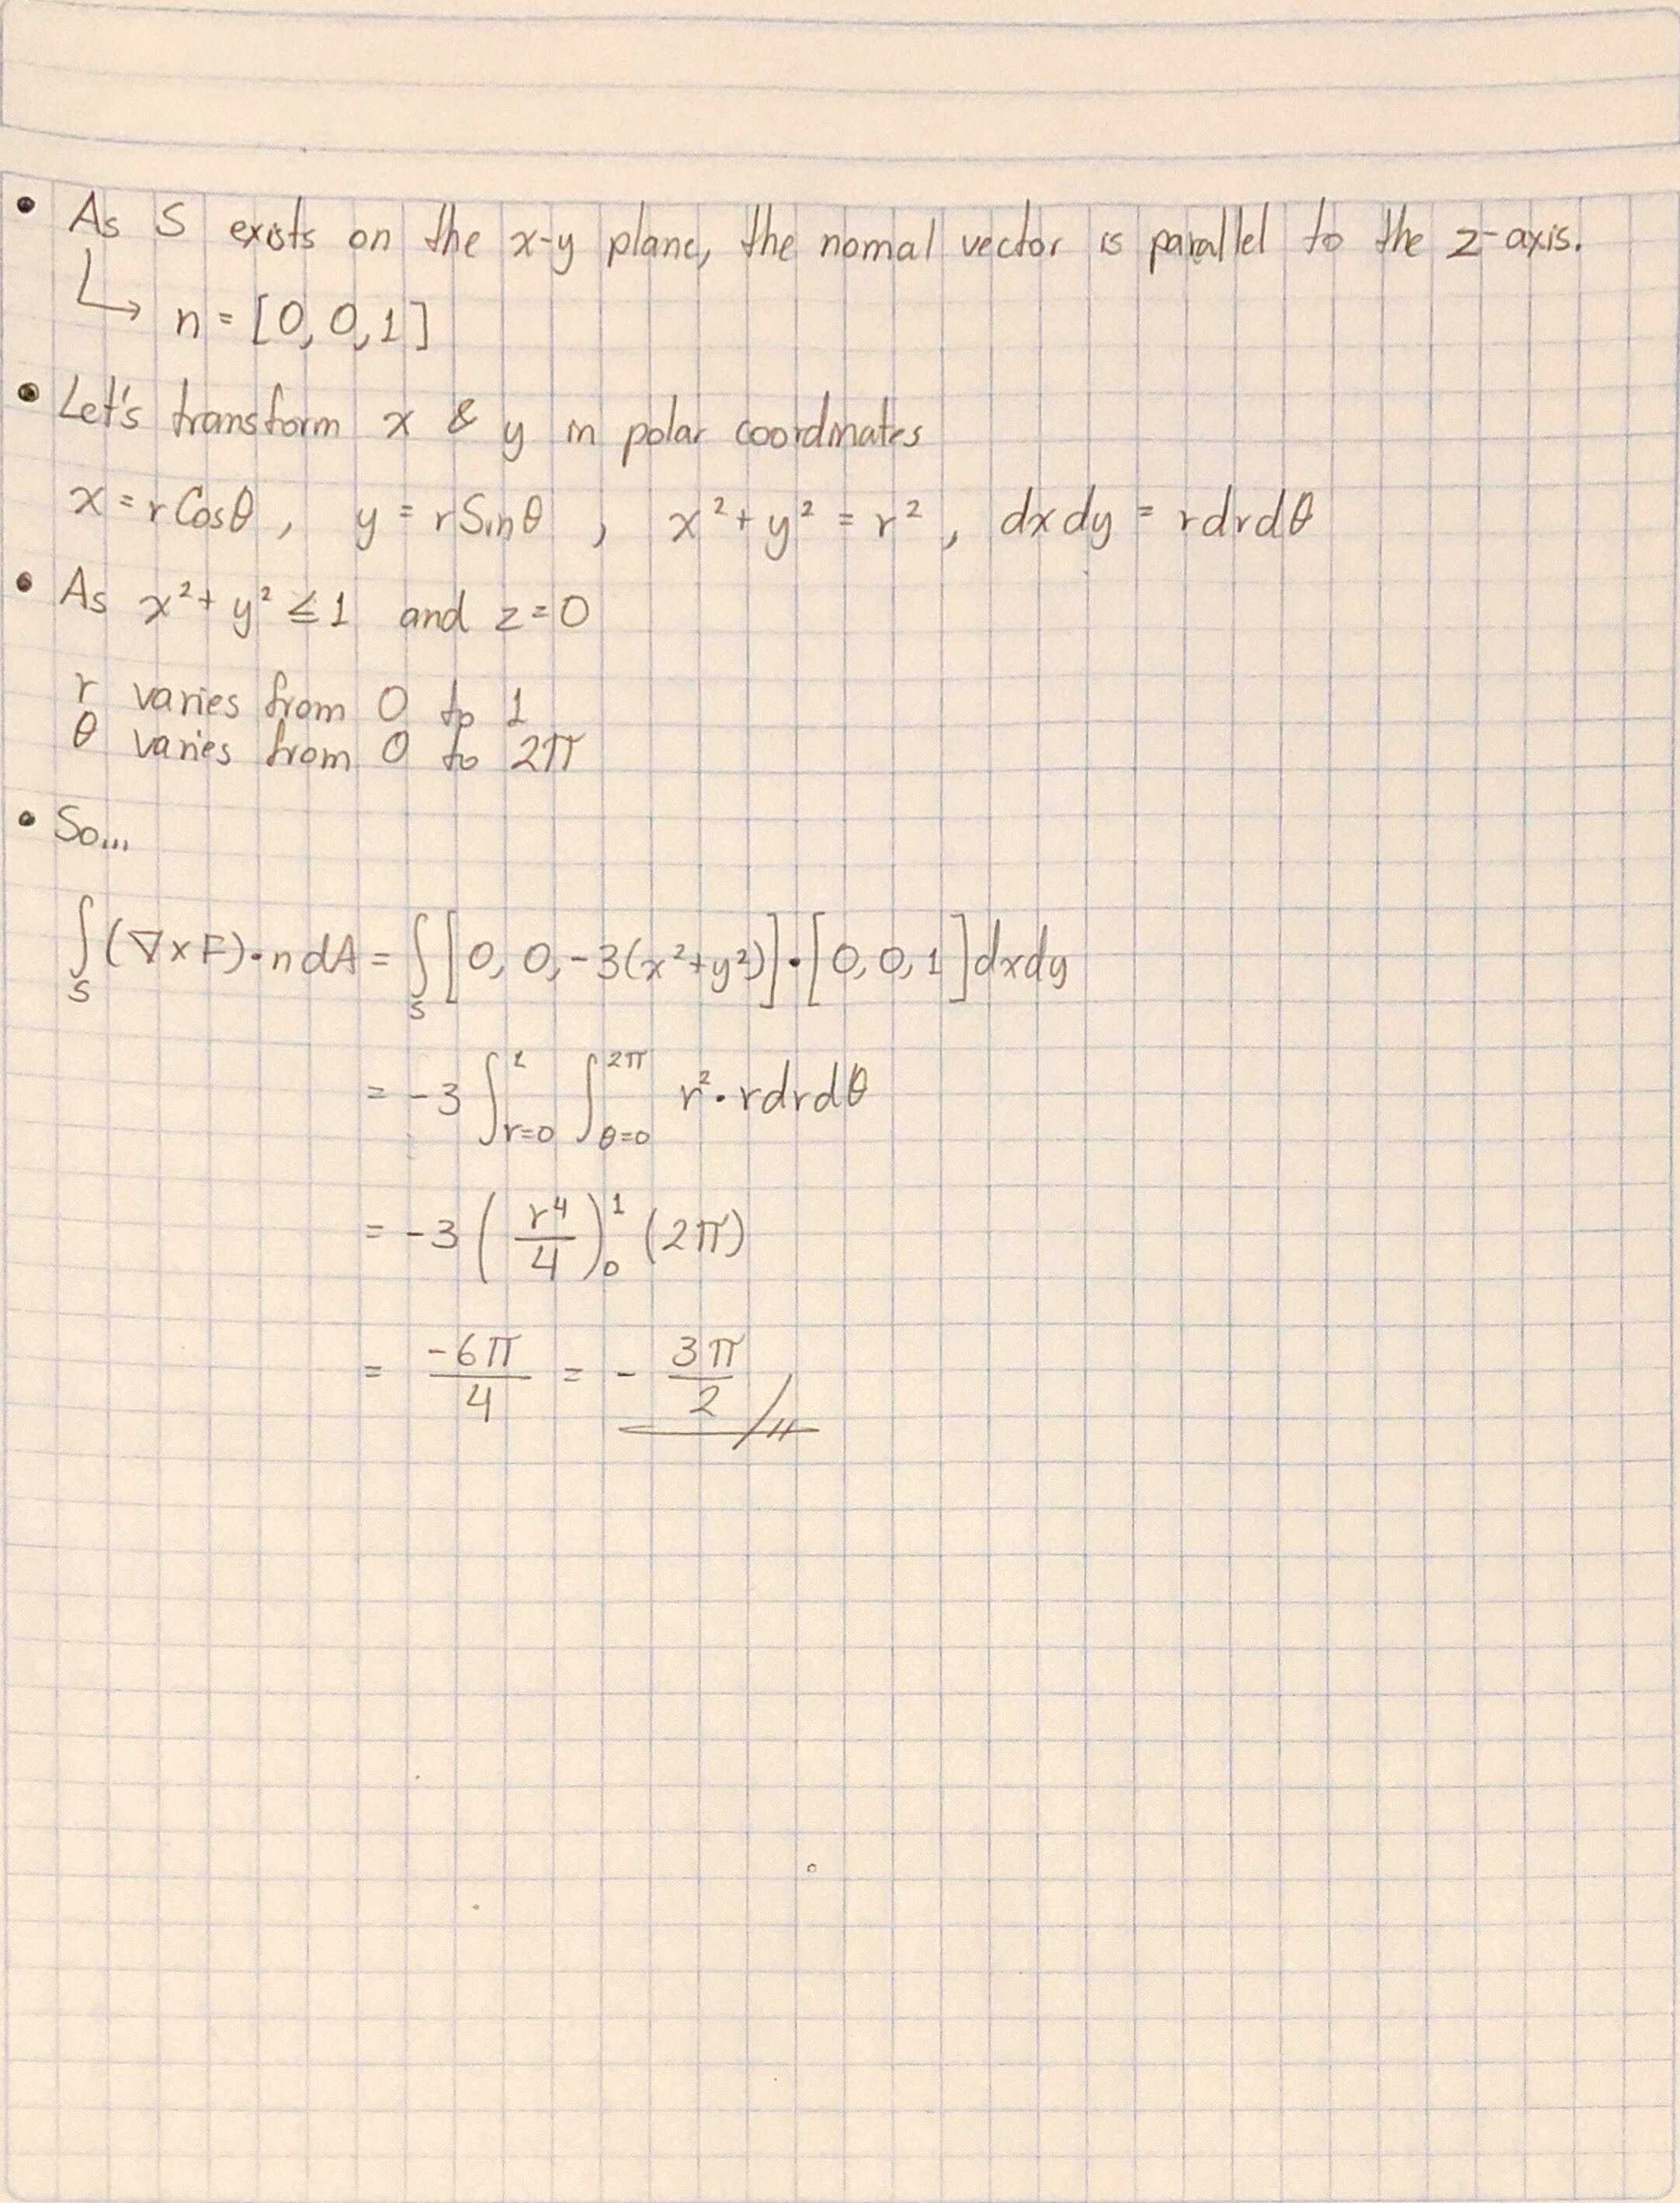 • As S exists on the x-y plane, the nomal vector is parallel to the z-axis.
↳ n = [0, 0, 1]
• Let's transform x & y in polar coordinates
x = r Cosθ, y = r Sinθ, x² + y² = r², dxdy = rdrdθ
• As x² + y² ≤ 1 and z = 0
r varies from 0 to 1
θ varies from 0 to 2π
• So...
∫_S (∇×F)·n dA = ∫_S [0, 0, -3(x²+y²)]·[0, 0, 1] dxdy
= -3 ∫_{r=0}^{1} ∫_{θ=0}^{2π} r²·rdrdθ
= -3 (r⁴/4)_0^1 (2π)
= -6π/4 = - 3π/2 //